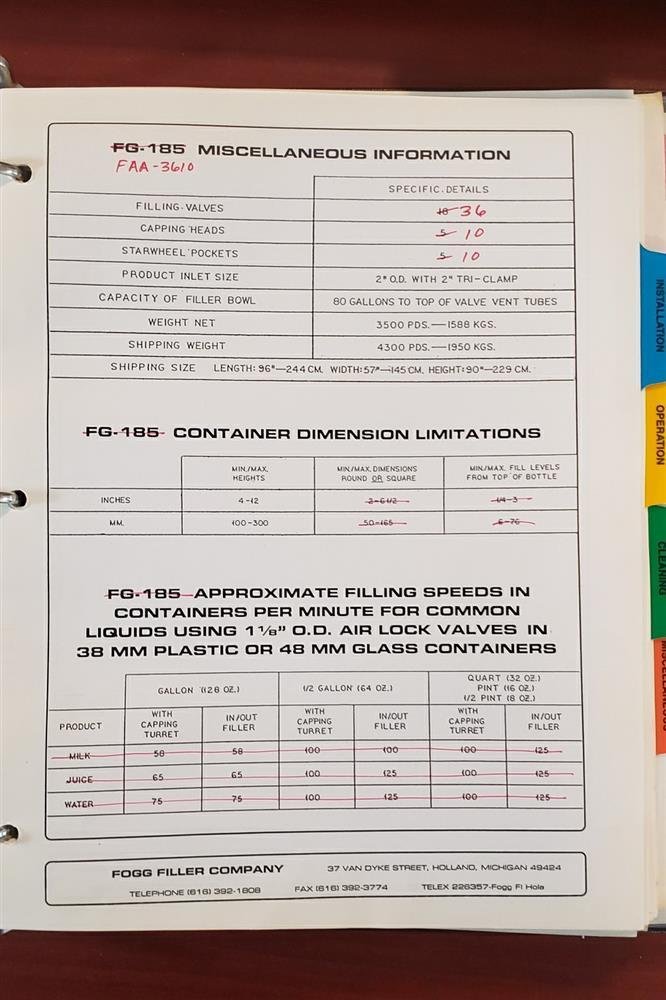 FG-185 MISCELLANEOUS INFORMATION
FAA-3610
SPECIFIC DETAILS
FILLING VALVES 18 36
CAPPING HEADS 5 10
STARWHEEL POCKETS 5 10
PRODUCT INLET SIZE 2" O.D. WITH 2" TRI-CLAMP
CAPACITY OF FILLER BOWL 80 GALLONS TO TOP OF VALVE VENT TUBES
WEIGHT NET 3500 PDS.—1588 KGS.
SHIPPING WEIGHT 4300 PDS.—1950 KGS.
SHIPPING SIZE LENGTH: 96"—244 CM. WIDTH: 57"—145 CM. HEIGHT: 90"—229 CM.
FG-185 CONTAINER DIMENSION LIMITATIONS
MIN./MAX. HEIGHTS
MIN./MAX. DIMENSIONS ROUND OR SQUARE
MIN./MAX. FILL LEVELS FROM TOP OF BOTTLE
INCHES 4-12 2-6 1/2 1/4-3
MM. 100-300 50-165 6-76
FG-185 APPROXIMATE FILLING SPEEDS IN
CONTAINERS PER MINUTE FOR COMMON
LIQUIDS USING 1 1/8" O.D. AIR LOCK VALVES IN
38 MM PLASTIC OR 48 MM GLASS CONTAINERS
GALLON (128 OZ.)
1/2 GALLON (64 OZ.)
QUART (32 OZ.)
PINT (16 OZ.)
1/2 PINT (8 OZ.)
PRODUCT
WITH CAPPING TURRET
IN/OUT FILLER
WITH CAPPING TURRET
IN/OUT FILLER
WITH CAPPING TURRET
IN/OUT FILLER
MILK 58 58 100 100 100 125
JUICE 65 65 100 125 100 125
WATER 75 75 100 125 100 125
FOGG FILLER COMPANY 37 VAN DYKE STREET, HOLLAND, MICHIGAN 49424
TELEPHONE (616) 392-1808 FAX (616) 392-3774 TELEX 226357-Fogg Fl Hola
INSTALLATION
OPERATION
CLEANING
MISCELLANEOUS